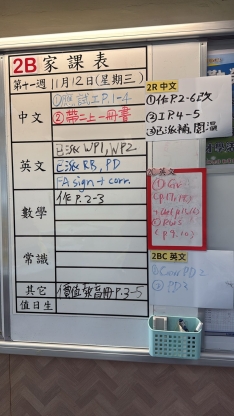 2B 家課表
第十一週 11月12日(星期三)
中文
①應試工P.1-4
②帶二上一冊書
英文
已派 WP1, WP2
已派 RB, PD
FA sign + corr.
數學
作 P.2-3
常識
其它
價值教育冊P.3-5
值日生
2R 中文
①作P.2-6改
②工P.4-5
③已派補
2C 英文
① Gr
(p.9,10)
2BC 英文
① Corr PD2
② PD3